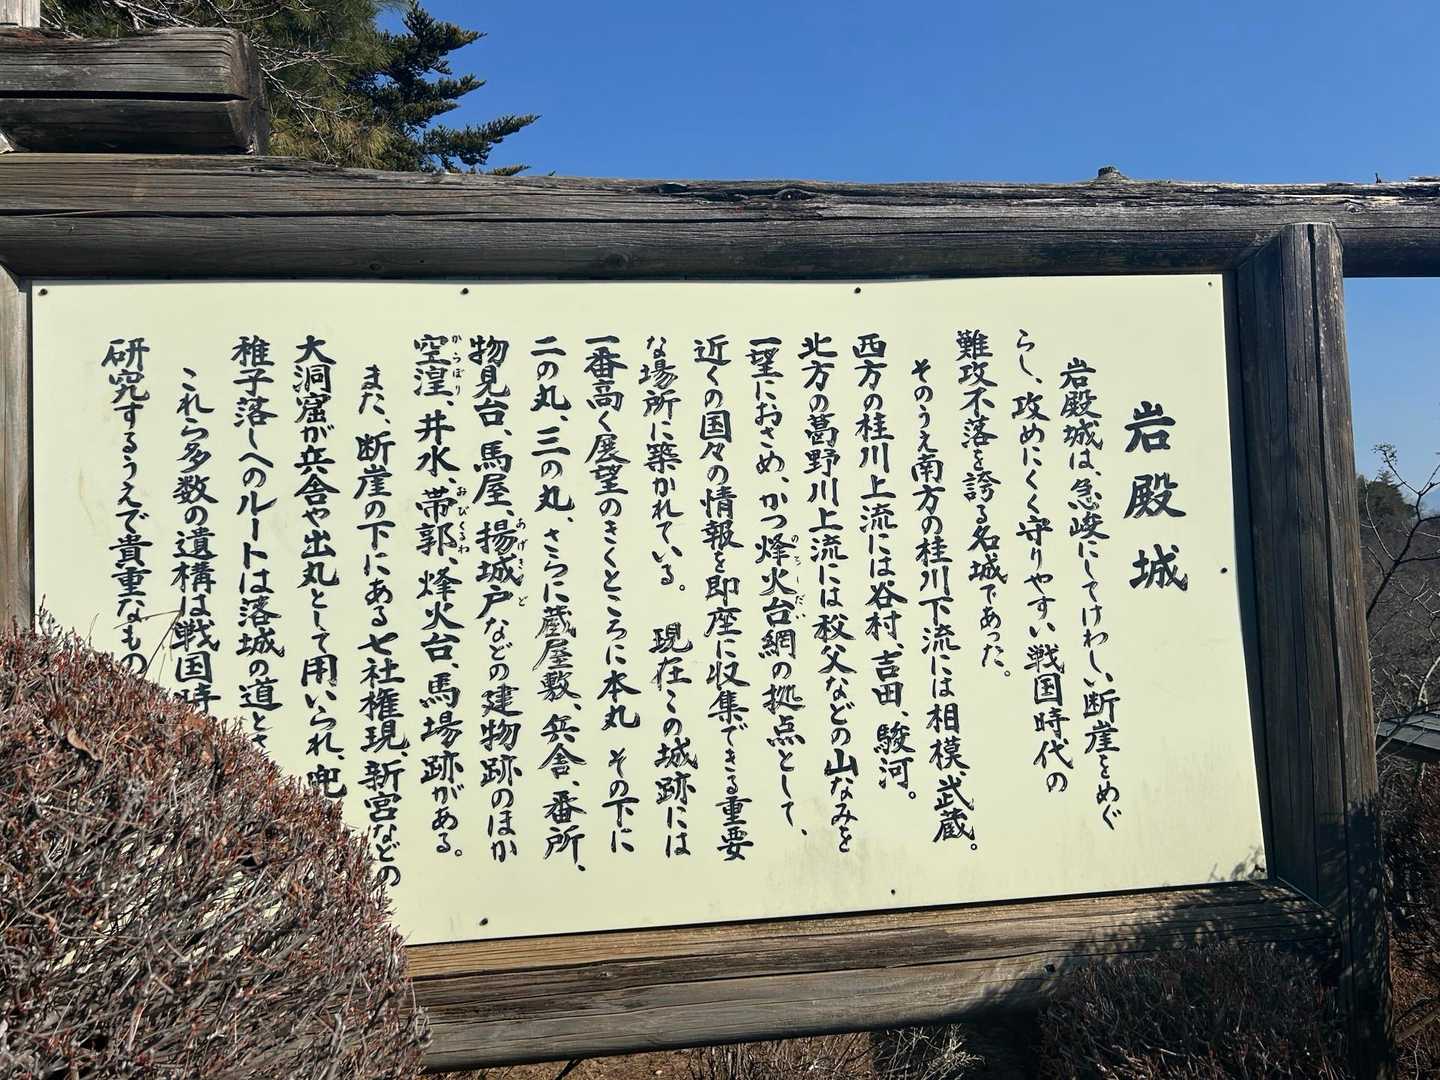 岩殿城
岩殿城は、急峻にしてけわしい断崖をめぐ
らし、攻めにくく守りやすい戦国時代の
難攻不落を誇る名城であった。
そのうえ南方の桂川下流には相模、武蔵。
西方の桂川上流には谷村、吉田、駿河。
北方の葛野川上流には秩父などの山なみを
一望におさめ、かつ烽火台網の拠点として、
のろしだい
近くの国々の情報を即座に収集できる重要
な場所に築かれている。 現在この城跡には
一番高く展望のきくところに本丸 その下に
二の丸、三の丸、さらに蔵屋敷、兵舎、番所、
物見台、馬屋、揚城戸などの建物跡のほか
あげきど
空湟、井水、帯郭、烽火台、馬場跡がある。
からぼり
おびくるわ
また、断崖の下にある七社権現、新宮などの
大洞窟が兵舎や出丸として用いられ、兜
稚子落しへのルートは落城の道とさ
これら多数の遺構は戦国時
研究するうえで貴重なもの